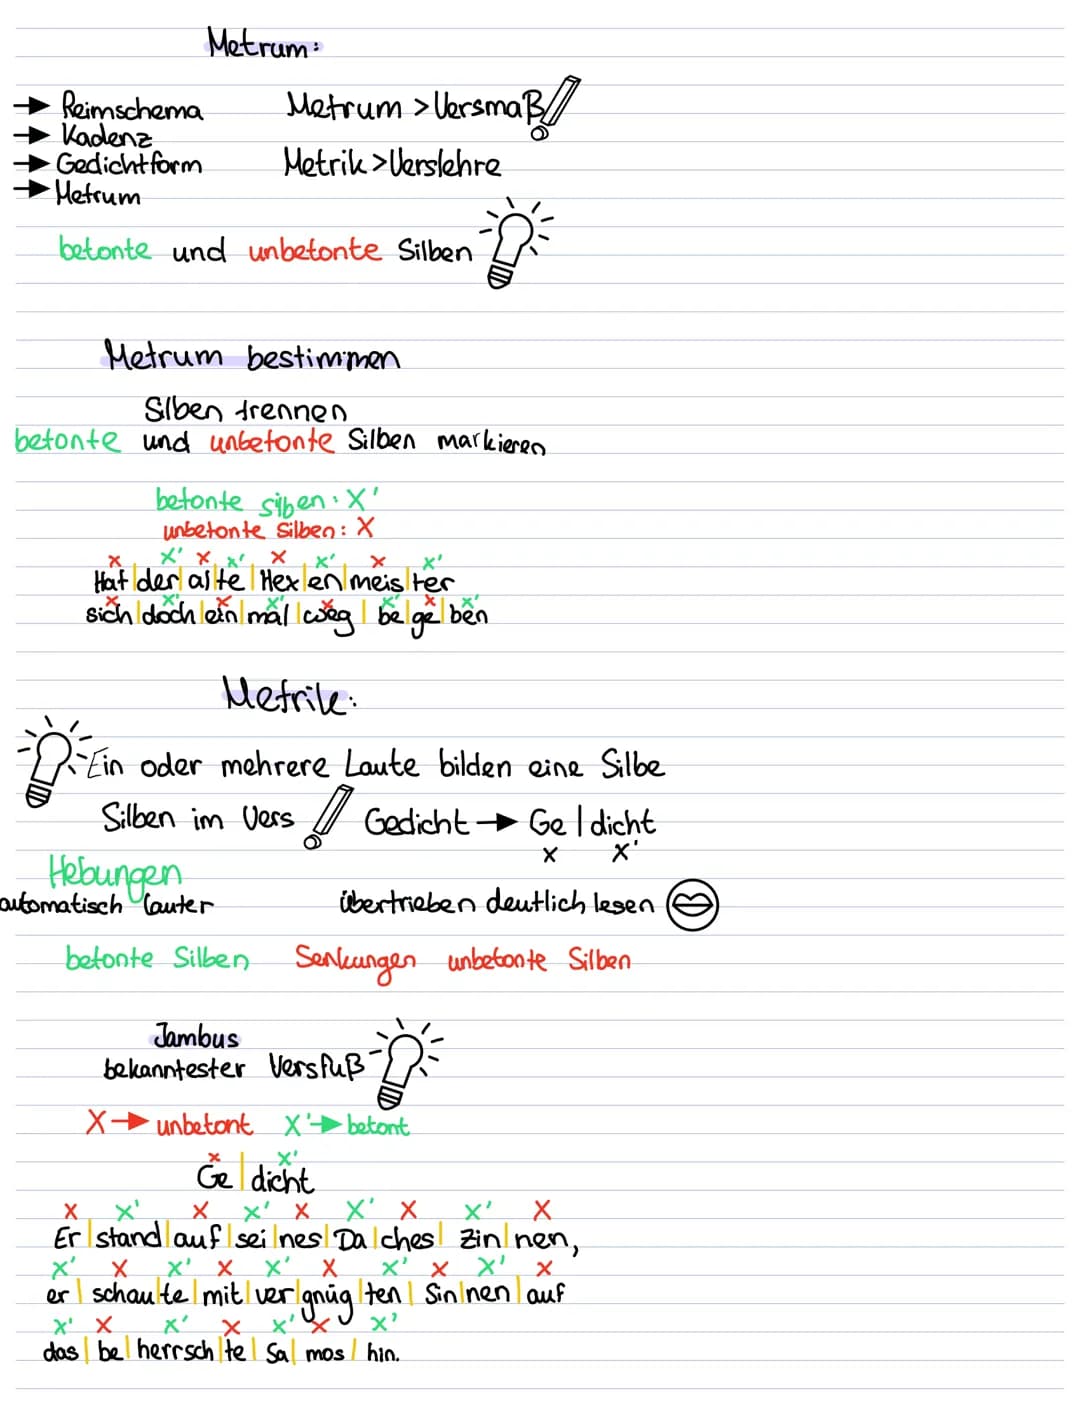 Metrum:
→ Reimschema Metrum > Versmaß
→ Kadenz
→ Gedichtform Metrik > Verslehre
→ Metrum
betonte und unbetonte Silben
Metrum bestimmen
Silben trennen
betonte und unbetonte Silben markieren
betonte silben: X'
unbetonte Silben: X
x x' x x' x x' x x'
Hat|der|al|te|Hex|en|meis|ter
x x' x x' x x' x x'
sich|doch|ein|mal|weg|be|ge|ben
Metrik:
Ein oder mehrere Laute bilden eine Silbe
Silben im Vers Gedicht → Ge|dicht
x x'
Hebungen
automatisch lauter übertrieben deutlich lesen
betonte Silben Senkungen unbetonte Silben
Jambus
bekanntester Versfuß
X → unbetont X' → betont
x x'
Ge|dicht
x x' x x' x x' x x' x
Er|stand|auf|sei|nes|Da|ches|Zin|nen,
x' x x' x x' x x' x x' x
er|schau|te|mit|ver|gnüg|ten|Sin|nen|auf
x' x x' x x' x x'
das|be|herrsch|te|Sa|mos|hin.